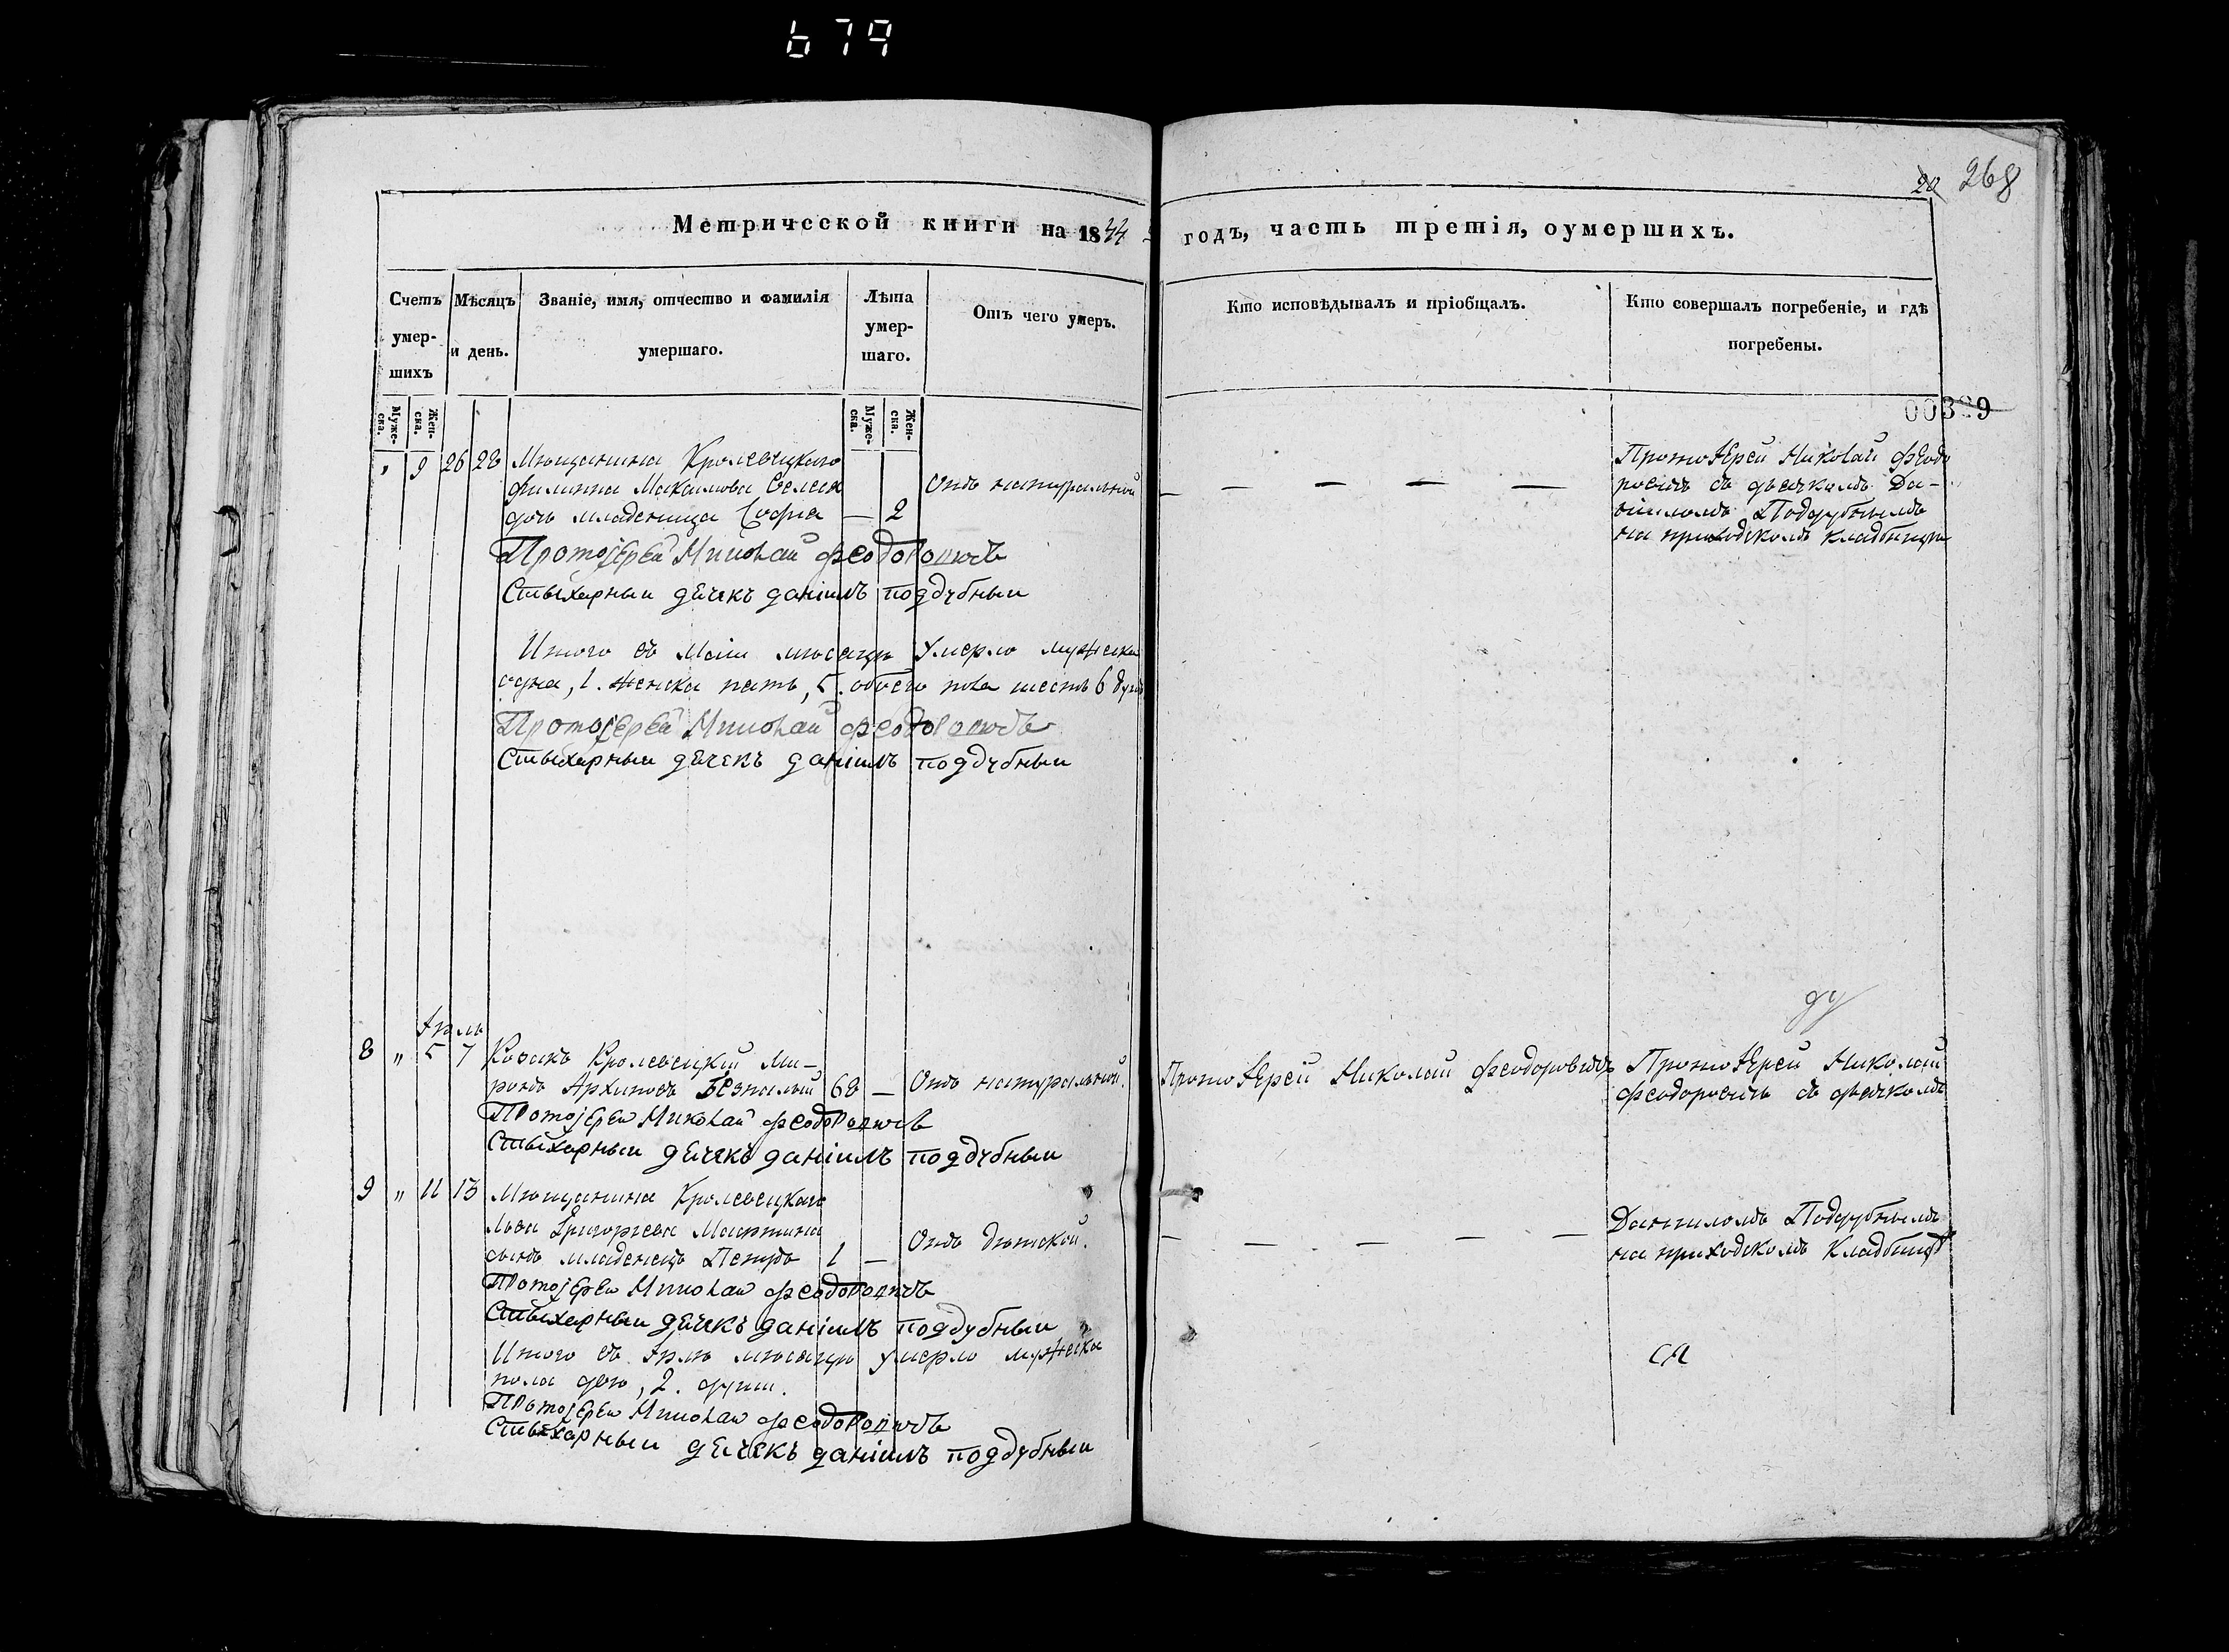 679
20 268
Метрической книги на 1844 годъ, часть третія, оумершихъ.
Счетъ умер-шихъ
Мѣсяцъ и день.
Званіе, имя, отчество и фамилія умершаго.
Лѣта умер-шаго.
Отъ чего умеръ.
Кто исповѣдывалъ и пріобщалъ.
Кто совершалъ погребеніе, и гдѣ погребены.
Муже-ска.
Жен-ска.
Муже-ска.
Жен-ска.
" 9 26 28 Мѣщанина Кролевецкаго
Филиппа Максимова
дочь младеница Софія — 2
Отъ натуральной
— — — — —
Протоіерей Николай Феодо
ровичъ съ дьячкомъ Да-
ніиломъ Поддубнымъ
на приходскомъ кладбищѣ
Протоіерей Николай Феодоровичъ
Стыхарный дьячекъ Даніилъ Поддубный
Итого въ Маіи мѣсяцѣ умерло мужеска
одна, 1. женска пять, 5. обоего пола шесть 6 душъ
Протоіерей Николай Феодоровичъ
Стыхарный дьячекъ Даніилъ Поддубный
8 " 5 7 Козакъ Кролевецкій Ми-
ронъ Архиповъ Безпалый 68 —
Отъ натуральной.
Протоіерей Николай Феодоровичъ
Протоіерей Николай
Феодоровичъ съ дьячкомъ
Протоіерей Николай Феодоровичъ
Стыхарный дьячекъ Даніилъ Поддубный
9 " 11 13 Мѣщанина Кролевецкаго
Льва Григорьева Мартина
сынъ младенецъ Петръ 1 —
Отъ дѣтской.
— — — — —
Даниломъ Поддубнымъ
на приходскомъ кладбищѣ
Протоіерей Николай Феодоровичъ
Стыхарный дьячекъ Даніилъ Поддубный
Итого въ мѣсяцѣ умерло мужеска
пола двѣ, 2. души.
Протоіерей Николай Феодоровичъ
Стыхарный дьячекъ Даніилъ Поддубный